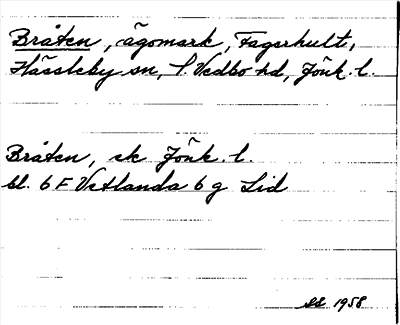 Bråten, ägomark, Fagerhult,
Hässleby sn, S. Vedbo hd, Jönk. l.
Bråten, ek Jönk. l.
bl. 6 F Vetlanda 6 g Lid
SS 1958